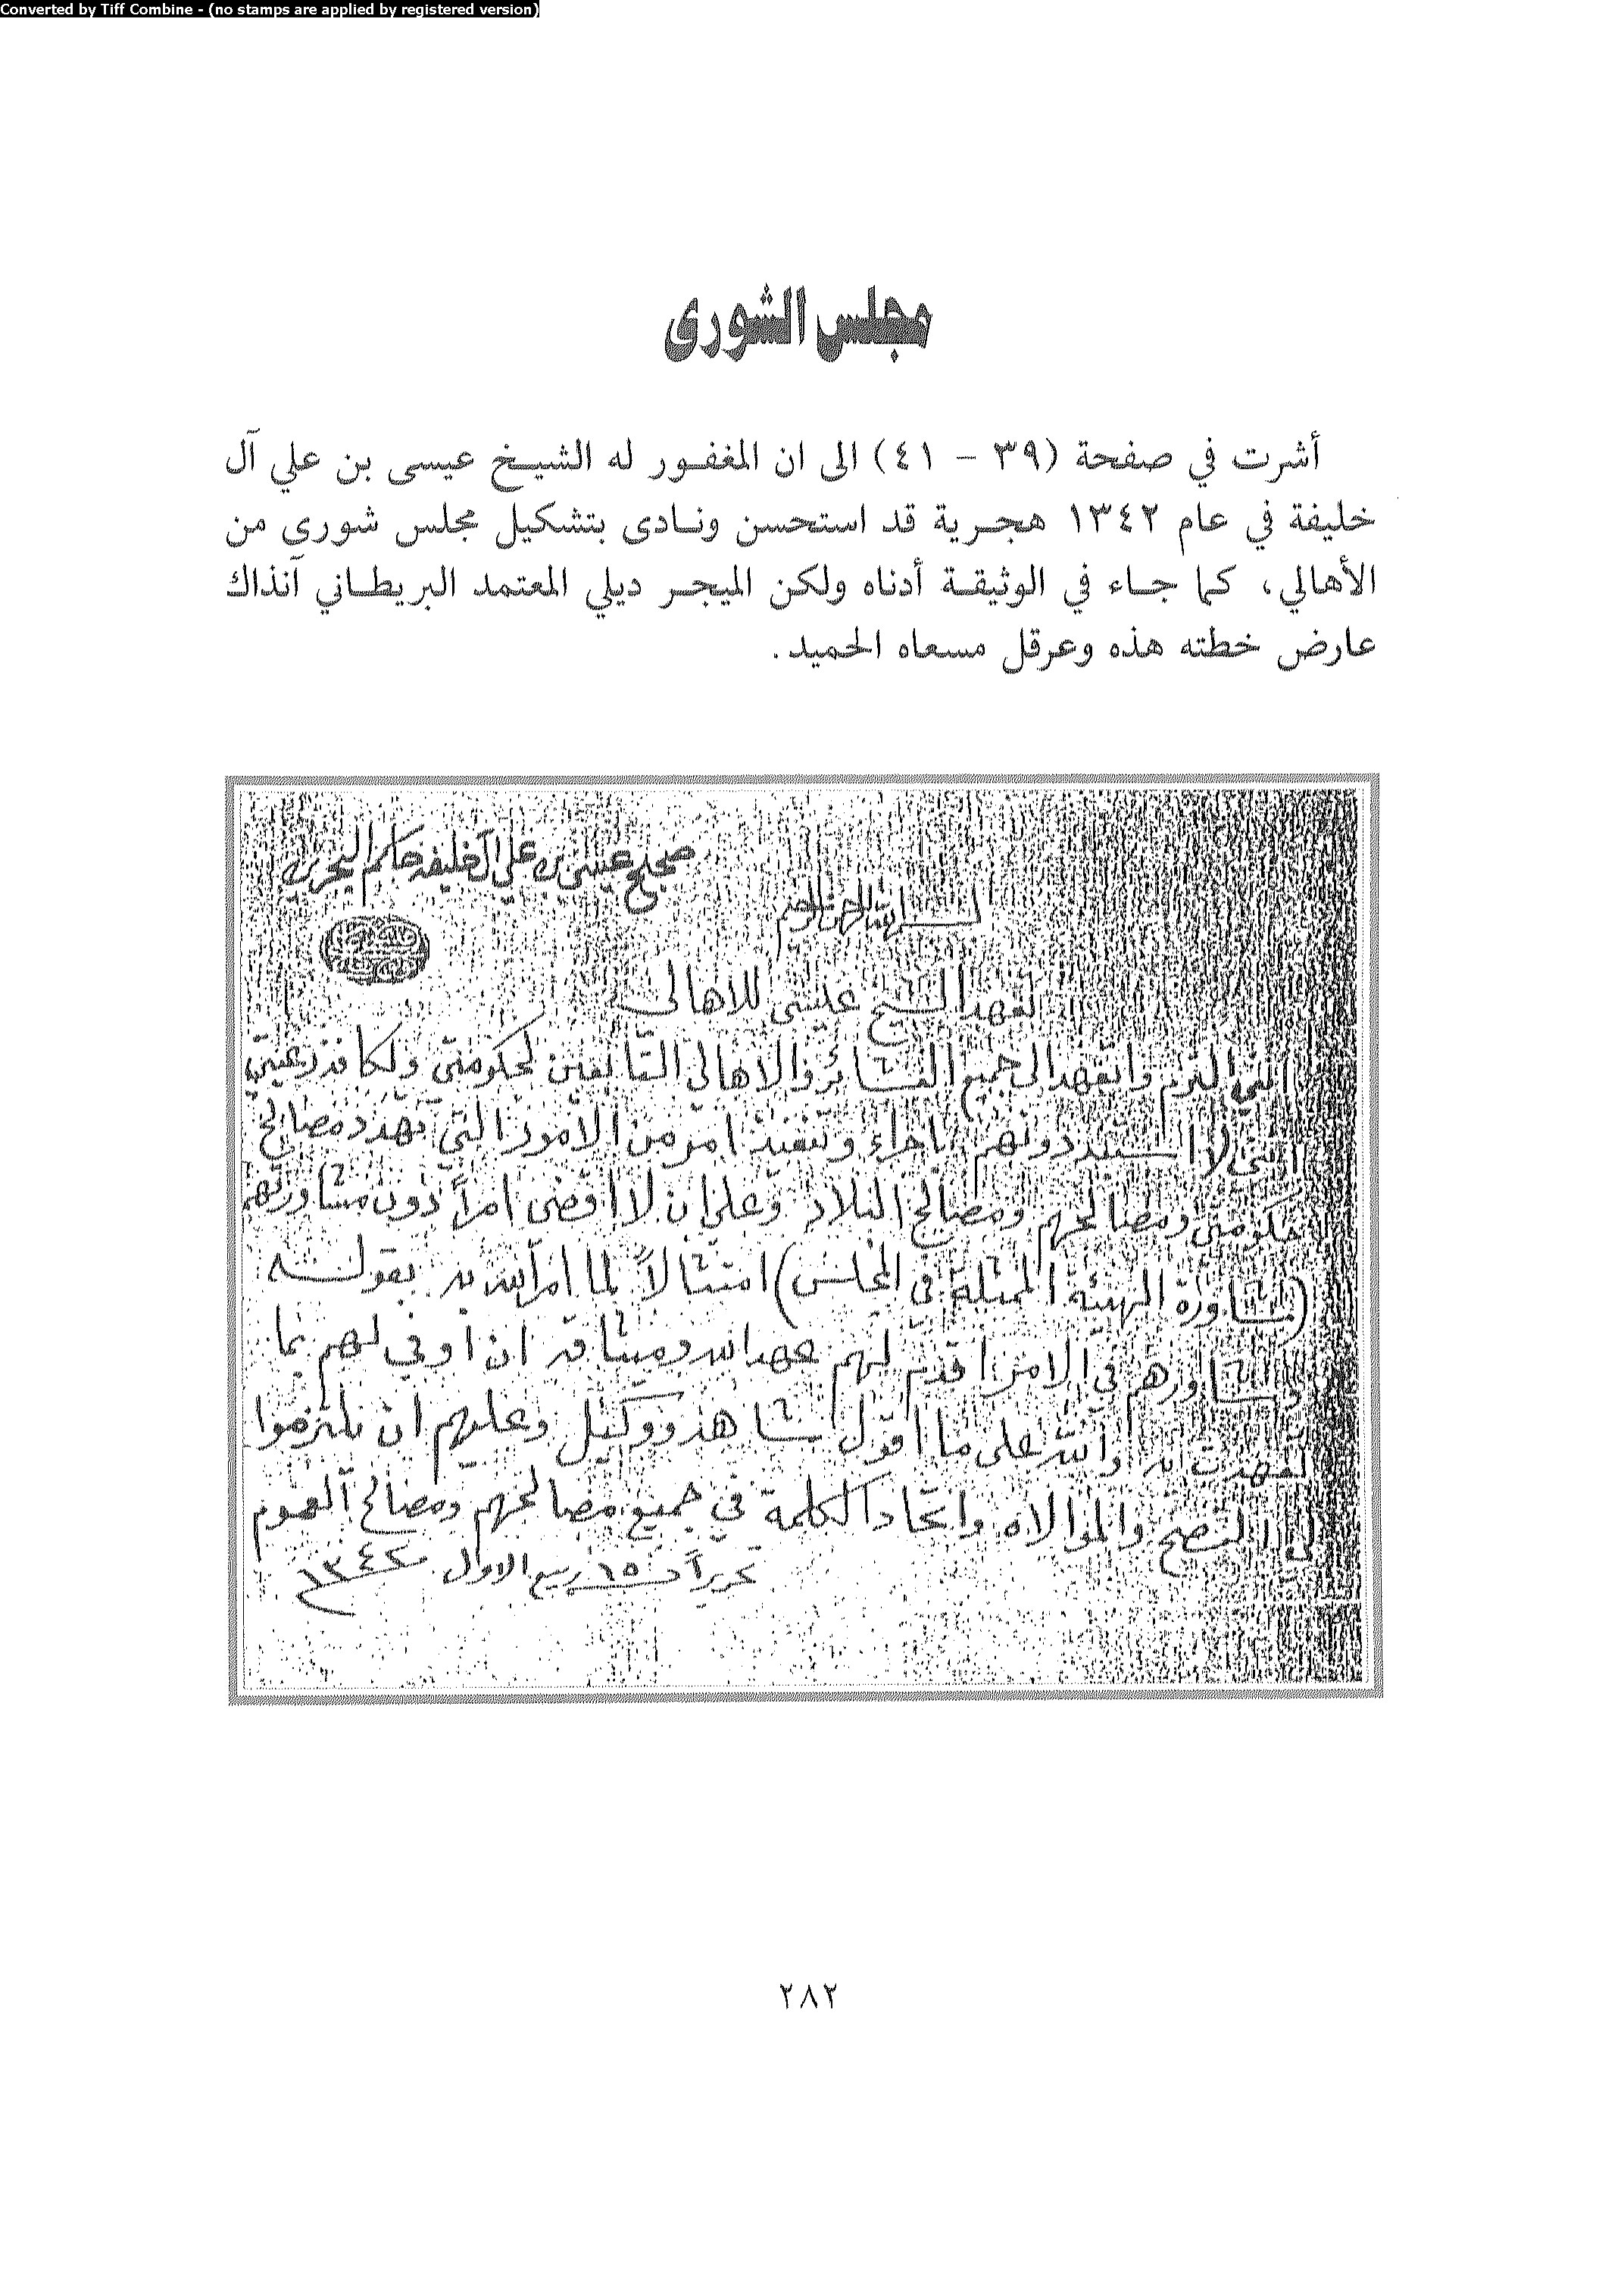 Converted by Tiff Combine - (no stamps are applied by registered version)
مجلس الشورى
أشرت في صفحة (٣٩ - ٤١) الى ان المغفور له الشيخ عيسى بن علي آل
خليفة في عام ١٣٤٢ هجرية قد استحسن ونادى بتشكيل مجلس شورى من
الأهالي، كما جاء في الوثيقة أدناه ولكن الميجر ديلي المعتمد البريطاني آنذاك
عارض خطته هذه وعرقل مسعاه الحميد.
صحيح عيسى بن علي آل خليفه حاكم البحرين
بسم الله الرحمن الرحيم
تعهد الشيخ عيسى للاهالي
انني التزم واتعهد الى جميع العشائر والاهالي التابعين لحكومتي ولكافة رعيتي
انني لا استبد دونهم باجراء وتنفيذ امر من الامور التي تهدد مصالح
حكومتي ومصالحهم ومصالح البلاد وعلى ان لا اقضى امراً دون مشاورتهم
(مشاورة الهيئة الممثلة في المجلس) امتثالاً لما امر الله به بقوله
وشاورهم في الامر اقدم لهم عهد الله وميثاقه ان أوفي لهم بما
تعهدت به والله على ما اقول شاهد ووكيل وعليهم ان يلتزموا
لي النصح والموالاه واتحاد الكلمة في جميع مصالحهم ومصالح العموم
تحريراً ١٥ ربيع الاول ١٣٤٢
٢٨٢